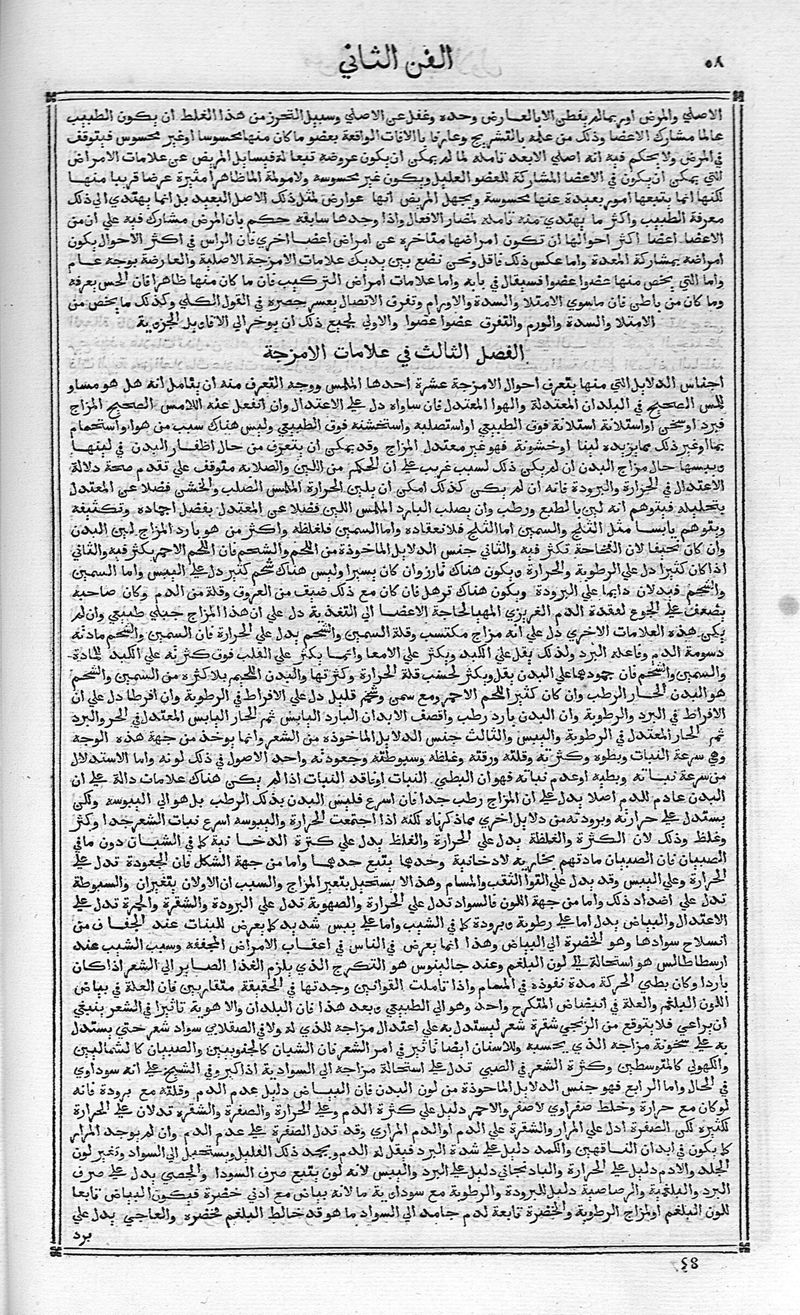 ٥٨
الفن الثاني
الاصلي والمرض اوربما لم يفطن الا بالعارض وحده وغفل عن الاصلي وسبيل التحرز من هذا الغلط ان يكون الطبيب
عالما مشارك الاعضا وذلك من علمه بالتشريح وعارفا بالافات الواقعة بعضو ما كان منها محسوسا او غير محسوس فيتوقف
في المرض ولا يحكم فيه انه اصلي الا بعد تامله لما لم يمكن ان يكون عروضه تبعا له فيسايل المريض عن علامات الامراض
التي يمكن ان يكون في الاعضا المشاركة للعضو العليل ويكون غير محسوسة ولا مولمة الما ظاهرا مثيرة عرضا قريبا منها
لكنها انما يتبعها امور بعيدة عنها محسوسة ويجهل المريض انها عوارض لمثل ذلك الاصل البعيد بل انما يهتدي الي ذلك
معرفة الطبيب واكثر ما يهتدي منه تامله لمضار الافعال واذا وجدها سابقه حكم بان المرض مشارك فيه علي ان من
الاعضا اعضا اكثر احوالها ان تكون امراضها متاخره عن امراض اعضا اخري فان الراس في اكثر الاحوال يكون
امراضه بمشاركة المعدة واما عكس ذلك فاقل ونحن نضع بين يديك علامات الامزجة الاصلية والعارضة بوجه عام
واما التي يخص منها عضوا عضوا فسيقال في بابه واما علامات امراض التركيب فان ما كان منها ظاهرا فان الحس يعرفه
وما كان من باطن فان ماسوي الامتلا والسدة والاورام وتفرق الاتصال يعسر حصره في القول الكلي وكذلك ما يخص من
الامتلا والسدة والورم والتفرق عضوا عضوا والاولي لجميع ذلك ان يوخر الي الاقاويل الجزوية
الفصل الثالث في علامات الامزجة
اجناس الدلايل التي منها يتعرف احوال الامزجة عشرة احدها الملمس ووجه التعرف منه ان يتامل انه هل هو مساو
للمس الصحيح في البلدان المعتدلة والهوا المعتدل فان ساواه دل علي الاعتدال وان انفعل عنه اللامس الصحيح المزاج
فبرد او سخن او استلانه استلانة فوق الطبيعي او استصلبه واستخشنه فوق الطبيعي وليس هناك سبب من هوا او استحمام
بما او غير ذلك مما يزيده لينا او خشونة فهو غير معتدل المزاج وقد يمكن ان يتعرف من حال اظفار اليدين في لينها
ويبسها حال مزاج البدن ان لم يكن ذلك لسبب غريب علي ان الحكم من اللين والصلابه متوقف علي تقدم صحة دلالة
الاعتدال في الحرارة والبرودة فانه ان لم يكن كذلك امكن ان يلين الحرارة الملمس الصلب والخشن فضلا عن المعتدل
بتحليله فيتوهم انه لين بالطبع ورطب وان يصلب البارد الملمس اللين فضلا عن المعتدل بفضل اجماده وتكثيفه
ويتوهم يابسا مثل الثلج والسمين اما الثلج فلانعقاده واما السمين فلغلظه واكثر من هو بارد المزاج لين البدن
وان كان نحيفا لان الفجاجة تكثر فيه والثاني جنس الدلايل الماخوذة من اللحم والشحم فان اللحم الاحمر
اذا كان كثيرا دل علي الرطوبة والحرارة ويكون هناك تلزز وان كان يسيرا وليس هناك شحم كثير دل علي اليبس واما السمين
والشحم فيدلان دايما علي البرودة ويكون هناك ترهل فان كان مع ذلك ضيف من العروق وقلة من الدم وكان صاحبه
يضعف علي الجوع لفقدة الدم الغريزي المهيا لحاجة الاعضا الي التغذية دل علي ان هذا المزاج جبلي طبيعي وان لم
يكن هذه العلامات الاخري دل علي انه مزاج مكتسب وقلة السمين والشحم يدل علي الحرارة فان السمين والشحم مادته
دسومة الدم وفاعله البرد ولذلك يقل علي الكبد ويكثر علي الامعا وانما يكثر علي القلب فوق كثرته علي الكبد للمادة
والسمين والشحم فان جمودها علي البدن يقل ويكثر لحسب قلة الحرارة وكثرتها والبدن اللحيم بلا كثرة من السمين والشحم
هو البدن الحار الرطب وان كان كثير اللحم الاحمر ومع سمن وشحم قليل دل علي الافراط في الرطوبة وان افرطا دل علي ان
الافراط في البرد والرطوبة وان البدن بارد رطب واقصف الابدان البارد اليابس ثم الحار اليابس المعتدل في الحر والبرد
ثم الحار المعتدل في الرطوبة واليبس والثالث جنس الدلايل الماخوذة من الشعر وانما يوخذ من جهة هذه الوجه
وهي سرعة النبات وبطوه وكثرته وقلته ورقته وغلظه وسبوطته وجعودته واحد الاصول في ذلك لونه واما الاستدلال
من سرعة نباته وبطيه او عدم نباته فهو ان البطي النبات او فاقد النبات اذا لم يكن هناك علامات دالة علي ان
البدن عادم للدم اصلا يدل علي ان المزاج رطب جدا فان اسرع فليس البدن بذلك الرطب بل هو الي اليبوسه ولكن
يستدل علي حرارته وبرودته من دلايل اخري مما ذكرناه لكنه اذا اجتمعت الحرارة واليبوسه اسرع نبات الشعر جدا وكثر
وغلظ وذلك لان الكثرة والغلظة يدل علي الحرارة والغلظ يدل علي كثرة الدخانية كما في الشبان دون ما في
الصبيان فان الصبيان مادتهم بخاريه لا دخانية وضدها يتبع ضدها واما من جهة الشكل فان الجعودة تدل علي
الحرارة وعلي اليبس وقد يدل علي التوا الثقب والمسام وهذا لا يستحيل بتغير المزاج والسبب ان الاولان يتغيران والسبوطة
تدل علي اضداد ذلك واما من جهة اللون فالسواد تدل علي الحرارة والصهوبة تدل علي البرودة والشقرة والحمرة تدل علي
الاعتدال والبياض يدل اما علي رطوبة وبرودة كما في الشيب واما علي يبس شديد كما يعرض للنبات عند الجفاف من
انسلاخ سوادها وهو الخضرة الي البياض وهذا انما يعرض في الناس في اعقاب الامراض المجففه وسبب الشيب عند
ارسطاطالس هو استحالة الي لون البلغم وعند جالينوس هو التكرج الذي يلزم الغذا الصاير الي الشعر اذا كان
باردا وكان بطي الحركة مدة نفوذه في المسام واذا تاملت القوانين وجدتها في الحقيقة متقاربين فان العلة في بياض
اللون البلغم والعلة في ابيضاض المتكرج واحد وهو الي الطبيعي وبعد هذا فان للبلدان والاهوية تاثيرا في الشعر ينبغي
ان يراعي فلا يتوقع من الزنجي شقرة شعر ليستدل به علي اعتدال مزاجه الذي له ولا في الصقلابي سواد شعر حتي يستدل
به علي سخونة مزاجه الذي بحسبه وللاسنان ايضا تاثير في امر الشعر فان الشبان كالجنوبيين والصبيان كالشماليين
والكهول كالمتوسطين وكثرة الشعر في الصبي تدل علي استحالة مزاجه الي السوادية اذا كبر وفي الشيخ علي انه سوداوي
في الحال واما الرابع فهو جنس الدلايل الماخوذة من لون البدن فان البياض دليل عدم الدم وقلته مع برودة فانه
لو كان مع حرارة وخلط صفراوي لاصفر والاحمر دليل علي كثرة الدم وعلي الحرارة والصفرة والشقرة تدلان علي الحرارة
الكثيرة لكن الصفرة ادل علي المرار والشقرة علي الدم او الدم المراري وقد تدل الصفرة علي عدم الدم وان لم يوجد المرار
كما يكون في ابدان الناقهين والكمد دليل علي شدة البرد فيقل له الدم ويجمد ذلك القليل ويستحيل الي السواد وتغير لون
الجلد والادم دليل علي الحرارة والباذنجاني دليل علي البرد واليبس لانه لون يتبع صرف السودا والجصي يدل علي صرف
البرد والبلغمية والرصاصية دليل للبرودة والرطوبة مع سوداوية ما لانه بياض مع ادني خضرة فيكون البياض تابعا
للون البلغم او لمزاج الرطوبة والخضرة تابعة لدم جامد الي السواد ما هو قد خالط البلغم فخضره والعاجي يدل علي
برد
٤٩